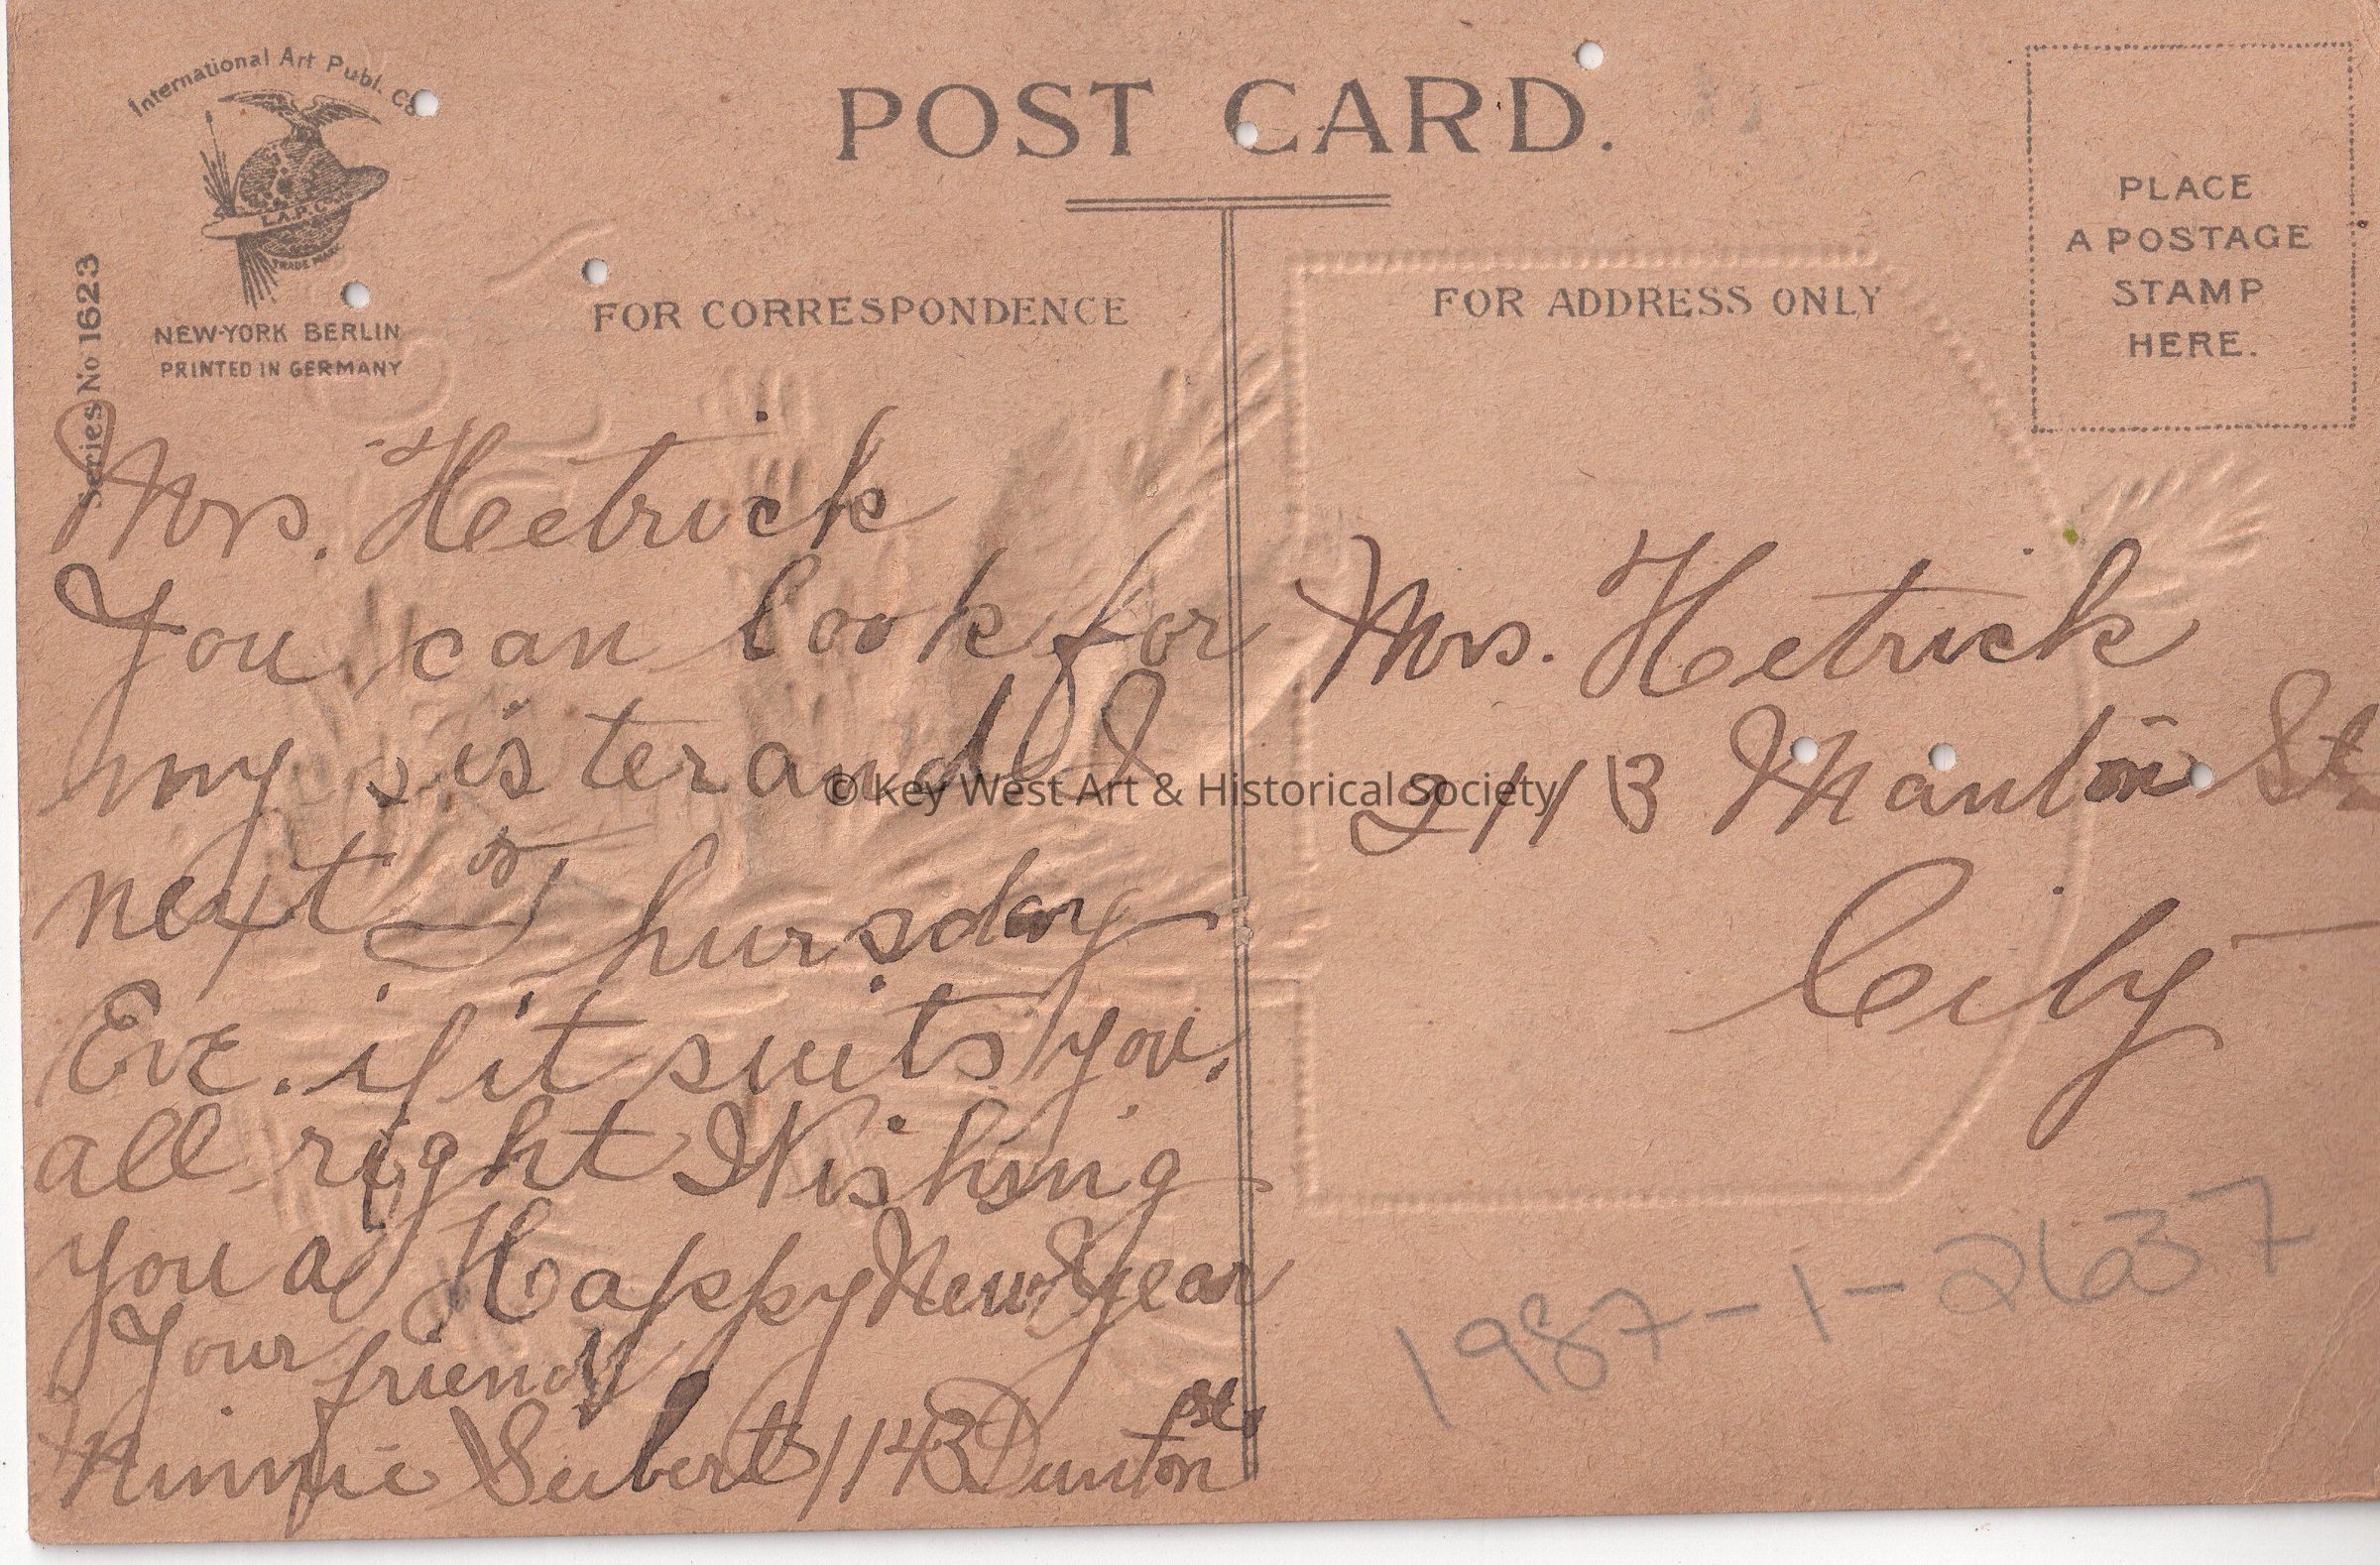 International Art Publ. Co.
I.A.P.Co.
TRADE MARK
NEW-YORK BERLIN
PRINTED IN GERMANY
Series No 1623
POST CARD.
FOR CORRESPONDENCE
FOR ADDRESS ONLY
PLACE
A POSTAGE
STAMP
HERE.
Mrs. Hetrick
You can look for
my sister and I
next Thursday
Eve. if it suits you.
all right Wishing
you a Happy New Year
Your friend
Minnie Seibert 1143 Dunton st.
Mrs. Hetrick
2113 Manton St
City
© Key West Art & Historical Society
1987-1-2637